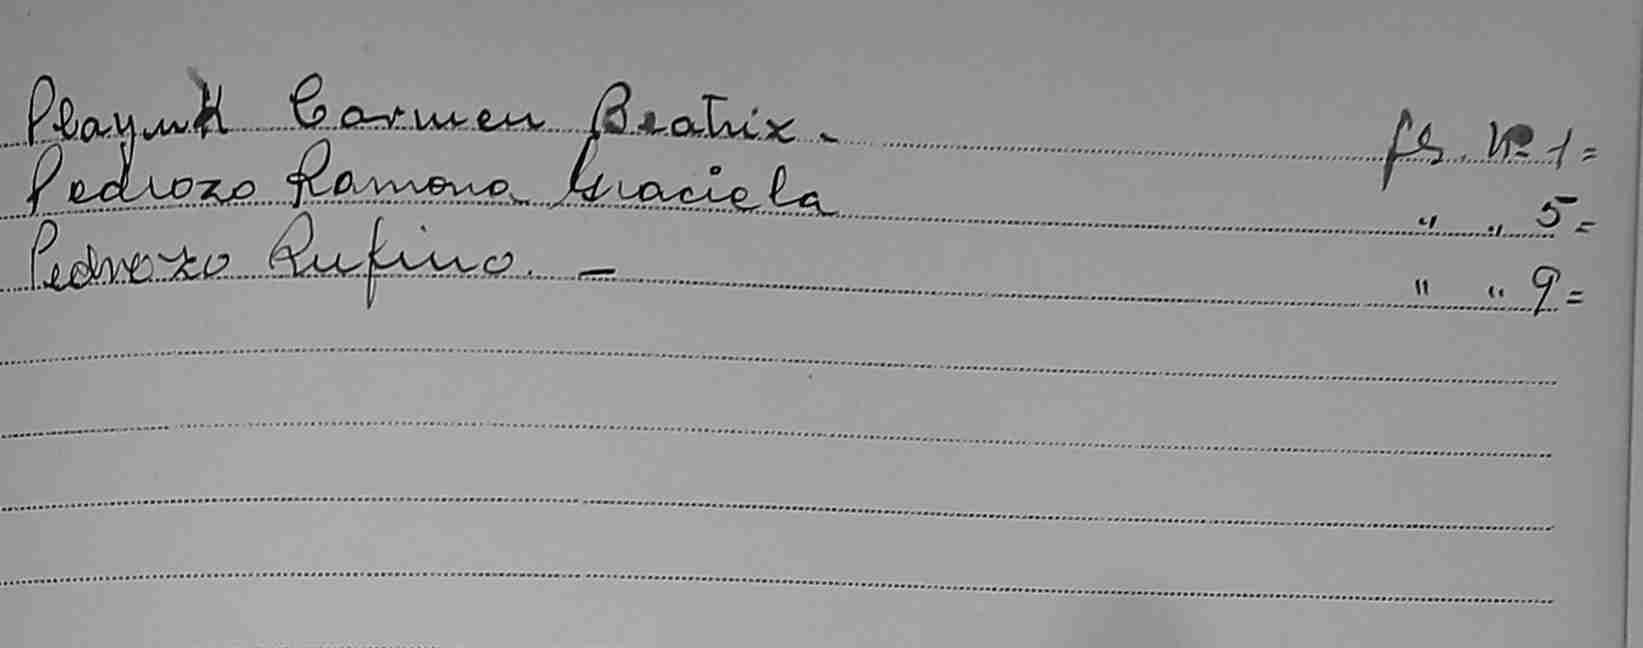 Carmen Beatrix. fs. Nº 1=
Pedrozo Ramona Graciela " " 5=
Pedrozo Rufino. — " " 9=